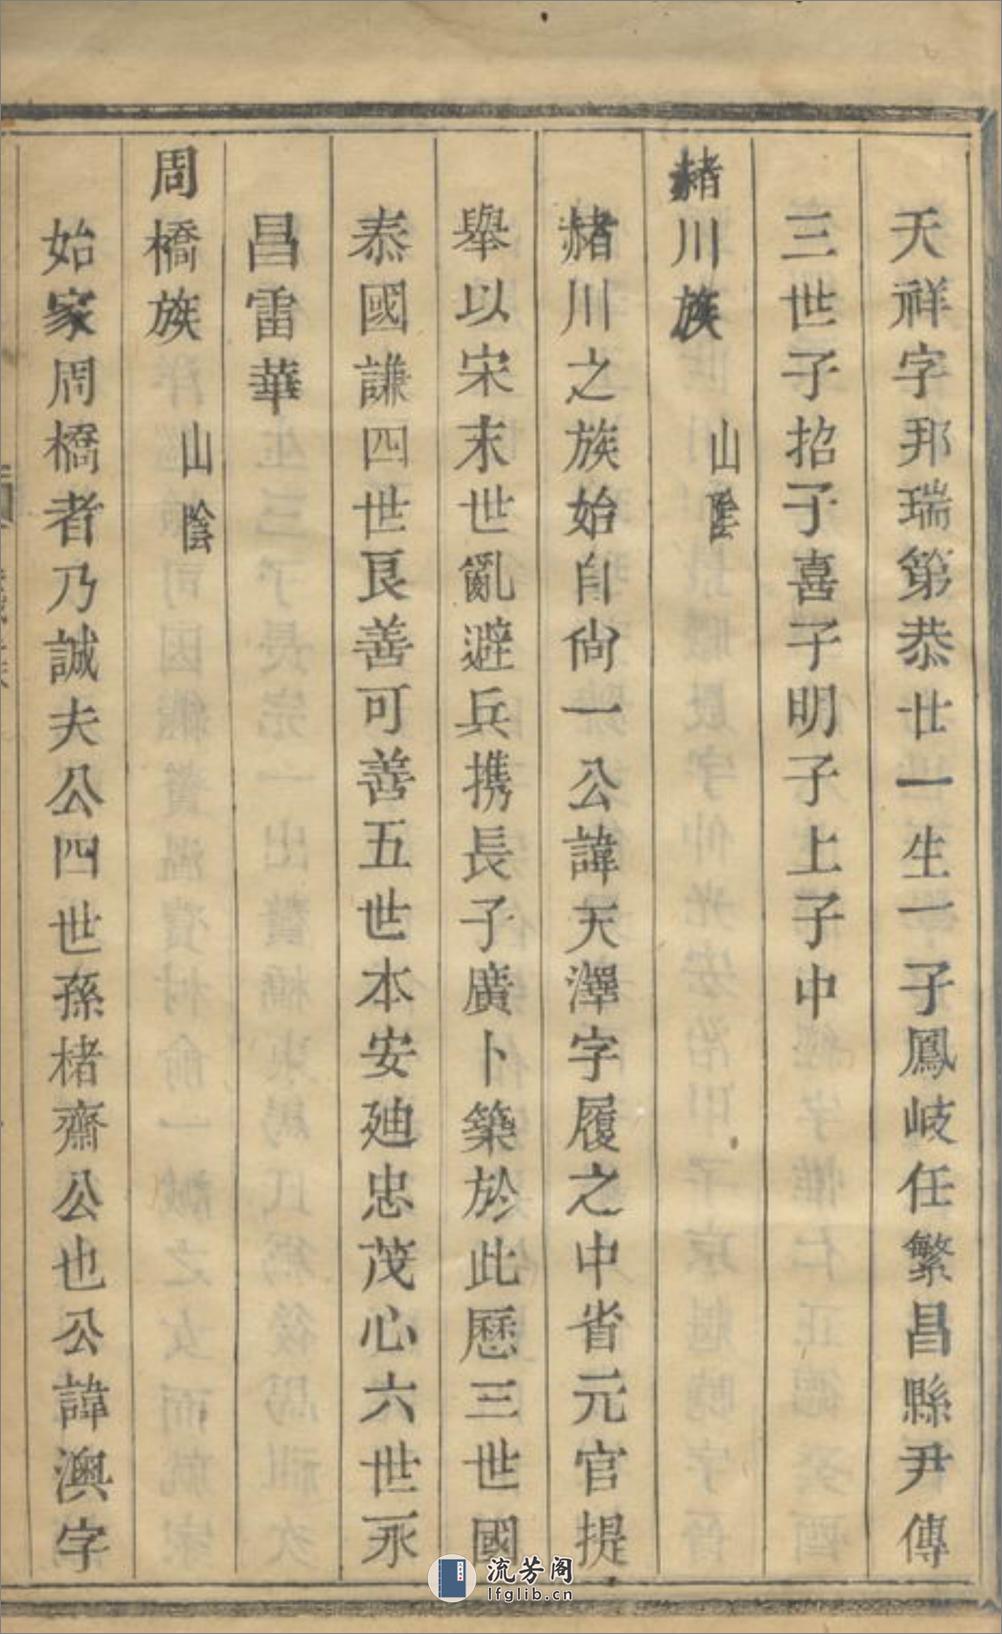 天祥字邦瑞第恭廿一生一子鳳岐任繁昌縣尹傳
三世子招子喜子明子上子中
赭川族 山陰
赭川之族始自尙一公諱天澤字履之中省元官提
舉以宋末世亂避兵携長子廣卜築於此歷三世國
泰國謙四世艮善可善五世本安廸忠茂心六世永
昌雷華
周橋族 山陰
始家周橋者乃誠夫公四世孫楮齋公也公諱澳字
流芳阁
lfglib.cn